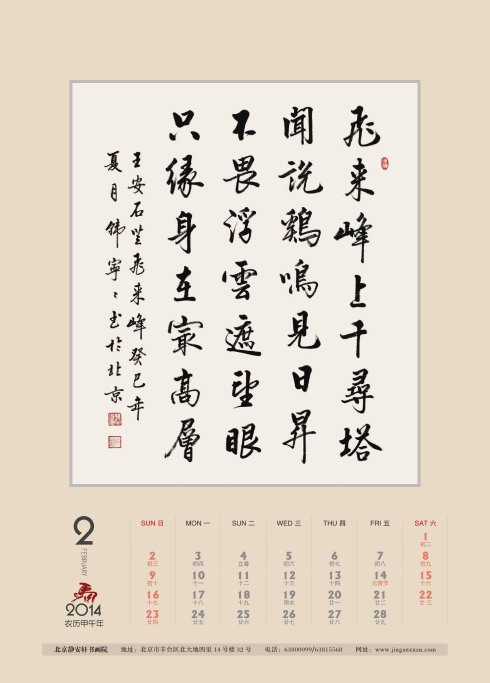 飛来峰上千尋塔
聞説鷄鳴見日昇
不畏浮雲遮望眼
只緣身在最高層
王安石登飛来峰癸巳年
夏月韩寧〻书於北京
2
FEBRUARY
2014
农历甲午年
SUN 日 MON 一 SUN 二 WED 三 THU 四 FRI 五 SAT 六
1
初二
2 3 4 5 6 7 8
初三 初四 立春 初六 初七 初八 初九
9 10 11 12 13 14 15
初十 十一 十二 十三 十四 元宵节 十六
16 17 18 19 20 21 22
十七 十八 十九 雨水 廿一 廿二 廿三
23 24 25 26 27 28
廿四 廿五 廿六 廿七 廿八 廿九
北京静安轩书画院 地址：北京市丰台区北大地四里14号楼32号 电话：63800099/63815568 网址：www.jinganxuan.com